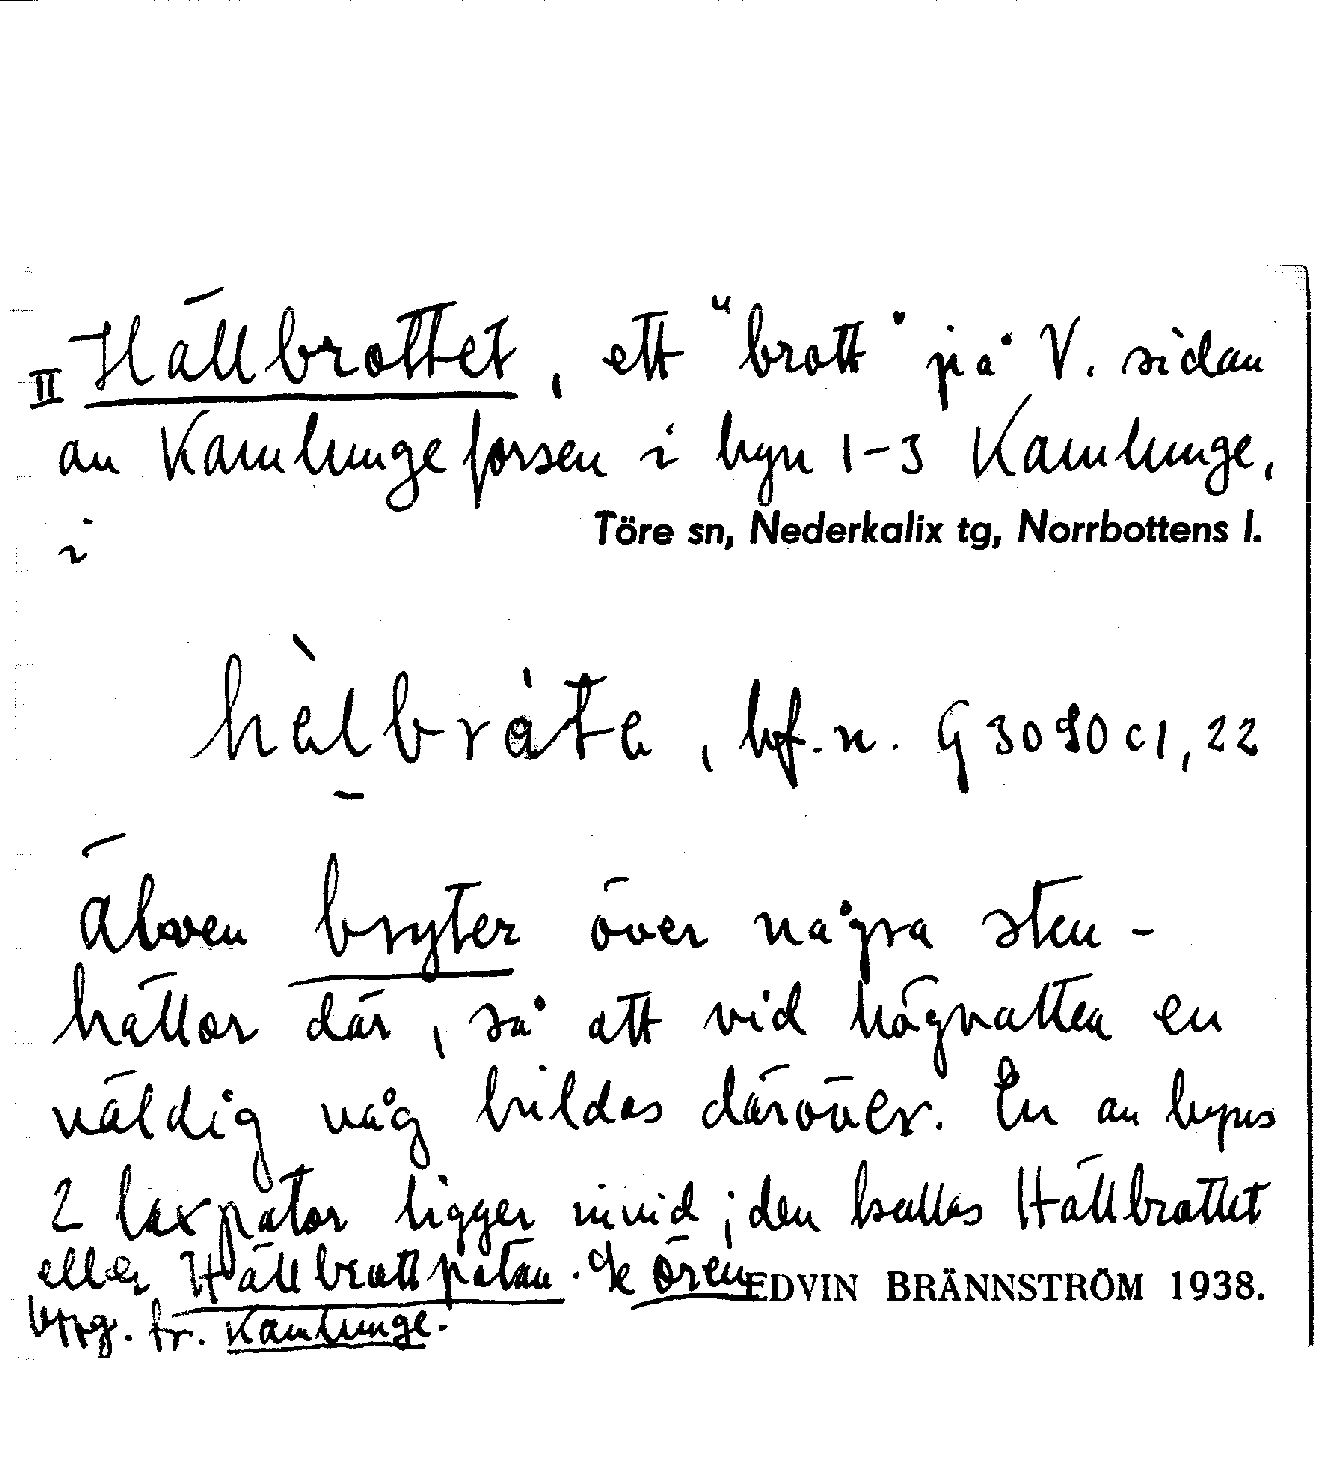 II Hällbrottet, ett "brott" på V. sidan
av Kamlungeforsen i byn 1-3 Kamlunge,
i Töre sn, Nederkalix tg, Norrbottens l.
hὲlbråte, bf. n. G 3090 c1, 22
Älven bryter över några sten-
hällor där, så att vid högvatten en
väldig våg bildas däröver. En av byns
2 laxpator ligger invid; den kallas Hällbrottet
eller Hällbrottpatan. Ören
EDVIN BRÄNNSTRÖM 1938.
fr. Kamlunge.